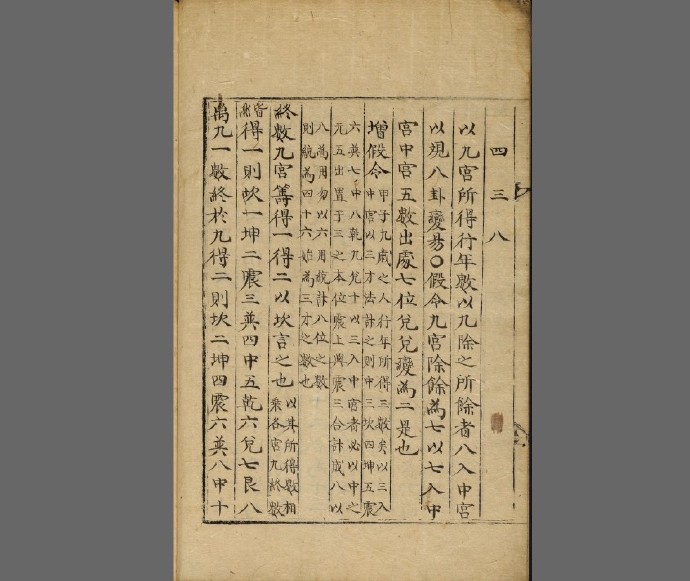 四三八
以九宮所得行年數以九除之所餘者八入中宮
以規八卦變易〇假令九宮除餘為七以七入中
宮中宮五數出處七位兌兌變為二是也
增假令甲子九歲之人行年所得三數矣以三入
中宮以三才法計之則中三坎四坤五震
六巽七中八乾九兌十以三入中宮者必以中之
元五出置于三之本位震上與震三合計成八以
八為用勿以六用統計八位之數
則統為四十六始為三才之數也
終數九宮筭得一得二以坎言之也以其所得數相
乘各宮九終數
皆
得一則坎一坤二震三巽四中五乾六兌七艮八
离九一數終於九得二則坎二坤四震六巽八中十